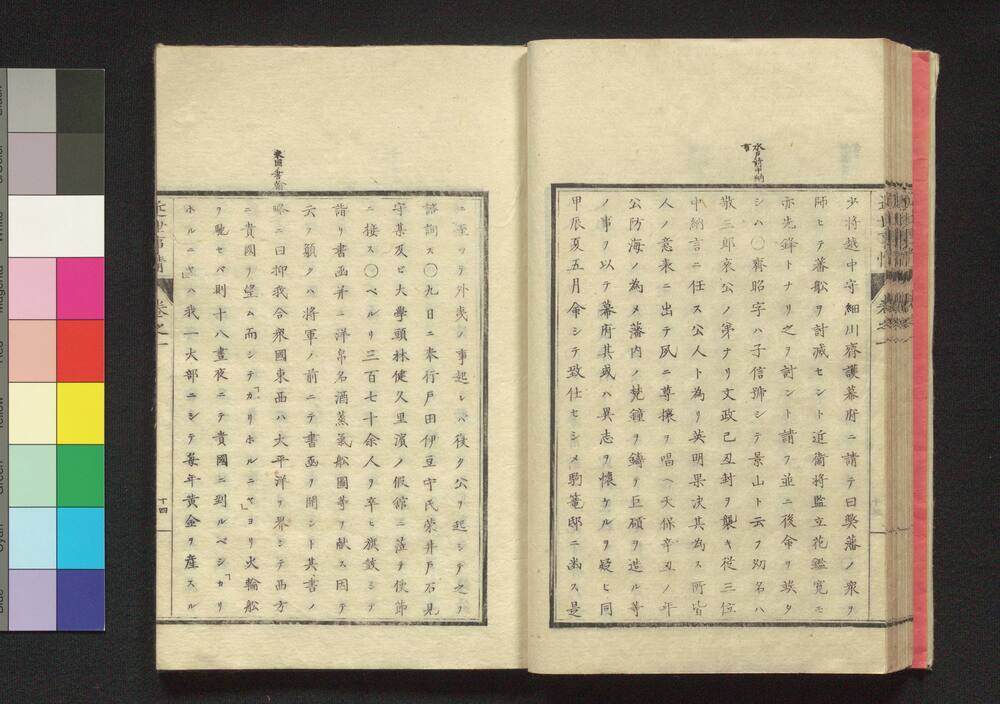 水戸前中納
言
少将越中守細川齊護幕府ニ請テ曰弊藩ノ衆ヲ
師ヒテ蕃舩ヲ討滅セント近衛将監立花鑑寛モ
亦先鋒トナリ之ヲ討ント請フ並ニ後命ヲ竢タ
シハ〇齊昭字ハ子信號シテ景山ト云フ幼名ハ
敬三郎哀公ノ弟ナリ文政己丑封ヲ襲キ従三位
中納言ニ任ス公人ト為リ英明果决其為ス所皆
人ノ意表ニ出テ夙ニ尊攘ヲ唱ヘ天保辛丑ノ年
公防海ノ為メ藩内ノ梵鐘ヲ鑄テ巨砲ヲ造ル等
ノ事ヲ以テ幕府其或ハ異志ヲ懐ケルヲ疑ヒ同
甲辰夏五月命シテ致仕セシメ駒篭邸ニ幽ス是
米国書翰
ニ至ツテ外夷ノ事起レハ復タ公ヲ起シテ之ヲ
諮詢ス〇九日ニ奉行戸田伊豆守氏榮井戸石見
守某及ビ大學頭林健久里濱ノ假舘ニ莅テ使節
ニ接ス〇ペルリ三百七十余人ヲ卒ヒ旗皷シテ
詣リ書函并ニ洋帛名酒蒸氣舩圖等ヲ献ス因テ
云フ願クハ将軍ノ前ニテ書函ヲ開ント其書ノ
畧ニ曰抑我合衆國東西ハ大平洋ヲ界シテ西方
ニ貴國ヲ望ム而シテ「カリホルニヤ」ヨリ火輪舩
ヲ馳セバ則十八晝夜ニテ貴國ニ到ルベシ「カリ
ホルニヤ」ハ我一大部ニシテ毎年黄金ヲ産スル
近世事情
卷之一
十四